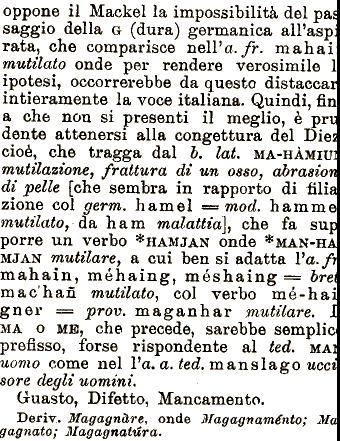 oppone il Mackel la impossibilità del pas
saggio della G (dura) germanica all'aspi
rata, che comparisce nell'a. fr. mahai
mutilato onde per rendere verosimile l
ipotesi, occorrerebbe da questo distaccar
intieramente la voce italiana. Quindi, fin
a che non si presenti il meglio, è pru
dente attenersi alla congettura del Diez
cioè, che tragga dal b. lat. MA-HÀMIUM
mutilazione, frattura di un osso, abrasion
di pelle [che sembra in rapporto di filia
zione col germ. hamel = mod. hamme
mutilato, da ham malattia], che fa sup
porre un verbo *HAMJAN onde *MAN-HA
MJAN mutilare, a cui ben si adatta l'a. fr
mahain, méhaing, méshaing = bret
mac'hañ mutilato, col verbo mé-hai
gner = prov. maganhar mutilare. I
MA O ME, che precede, sarebbe semplice
prefisso, forse rispondente al ted. MAN
uomo come nel l'a. a. ted. manslago ucci
sore degli uomini.
Guasto, Difetto, Mancamento.
Deriv. Magagnàre, onde Magagnaménto; Ma
gagnato; Magagnatúra.